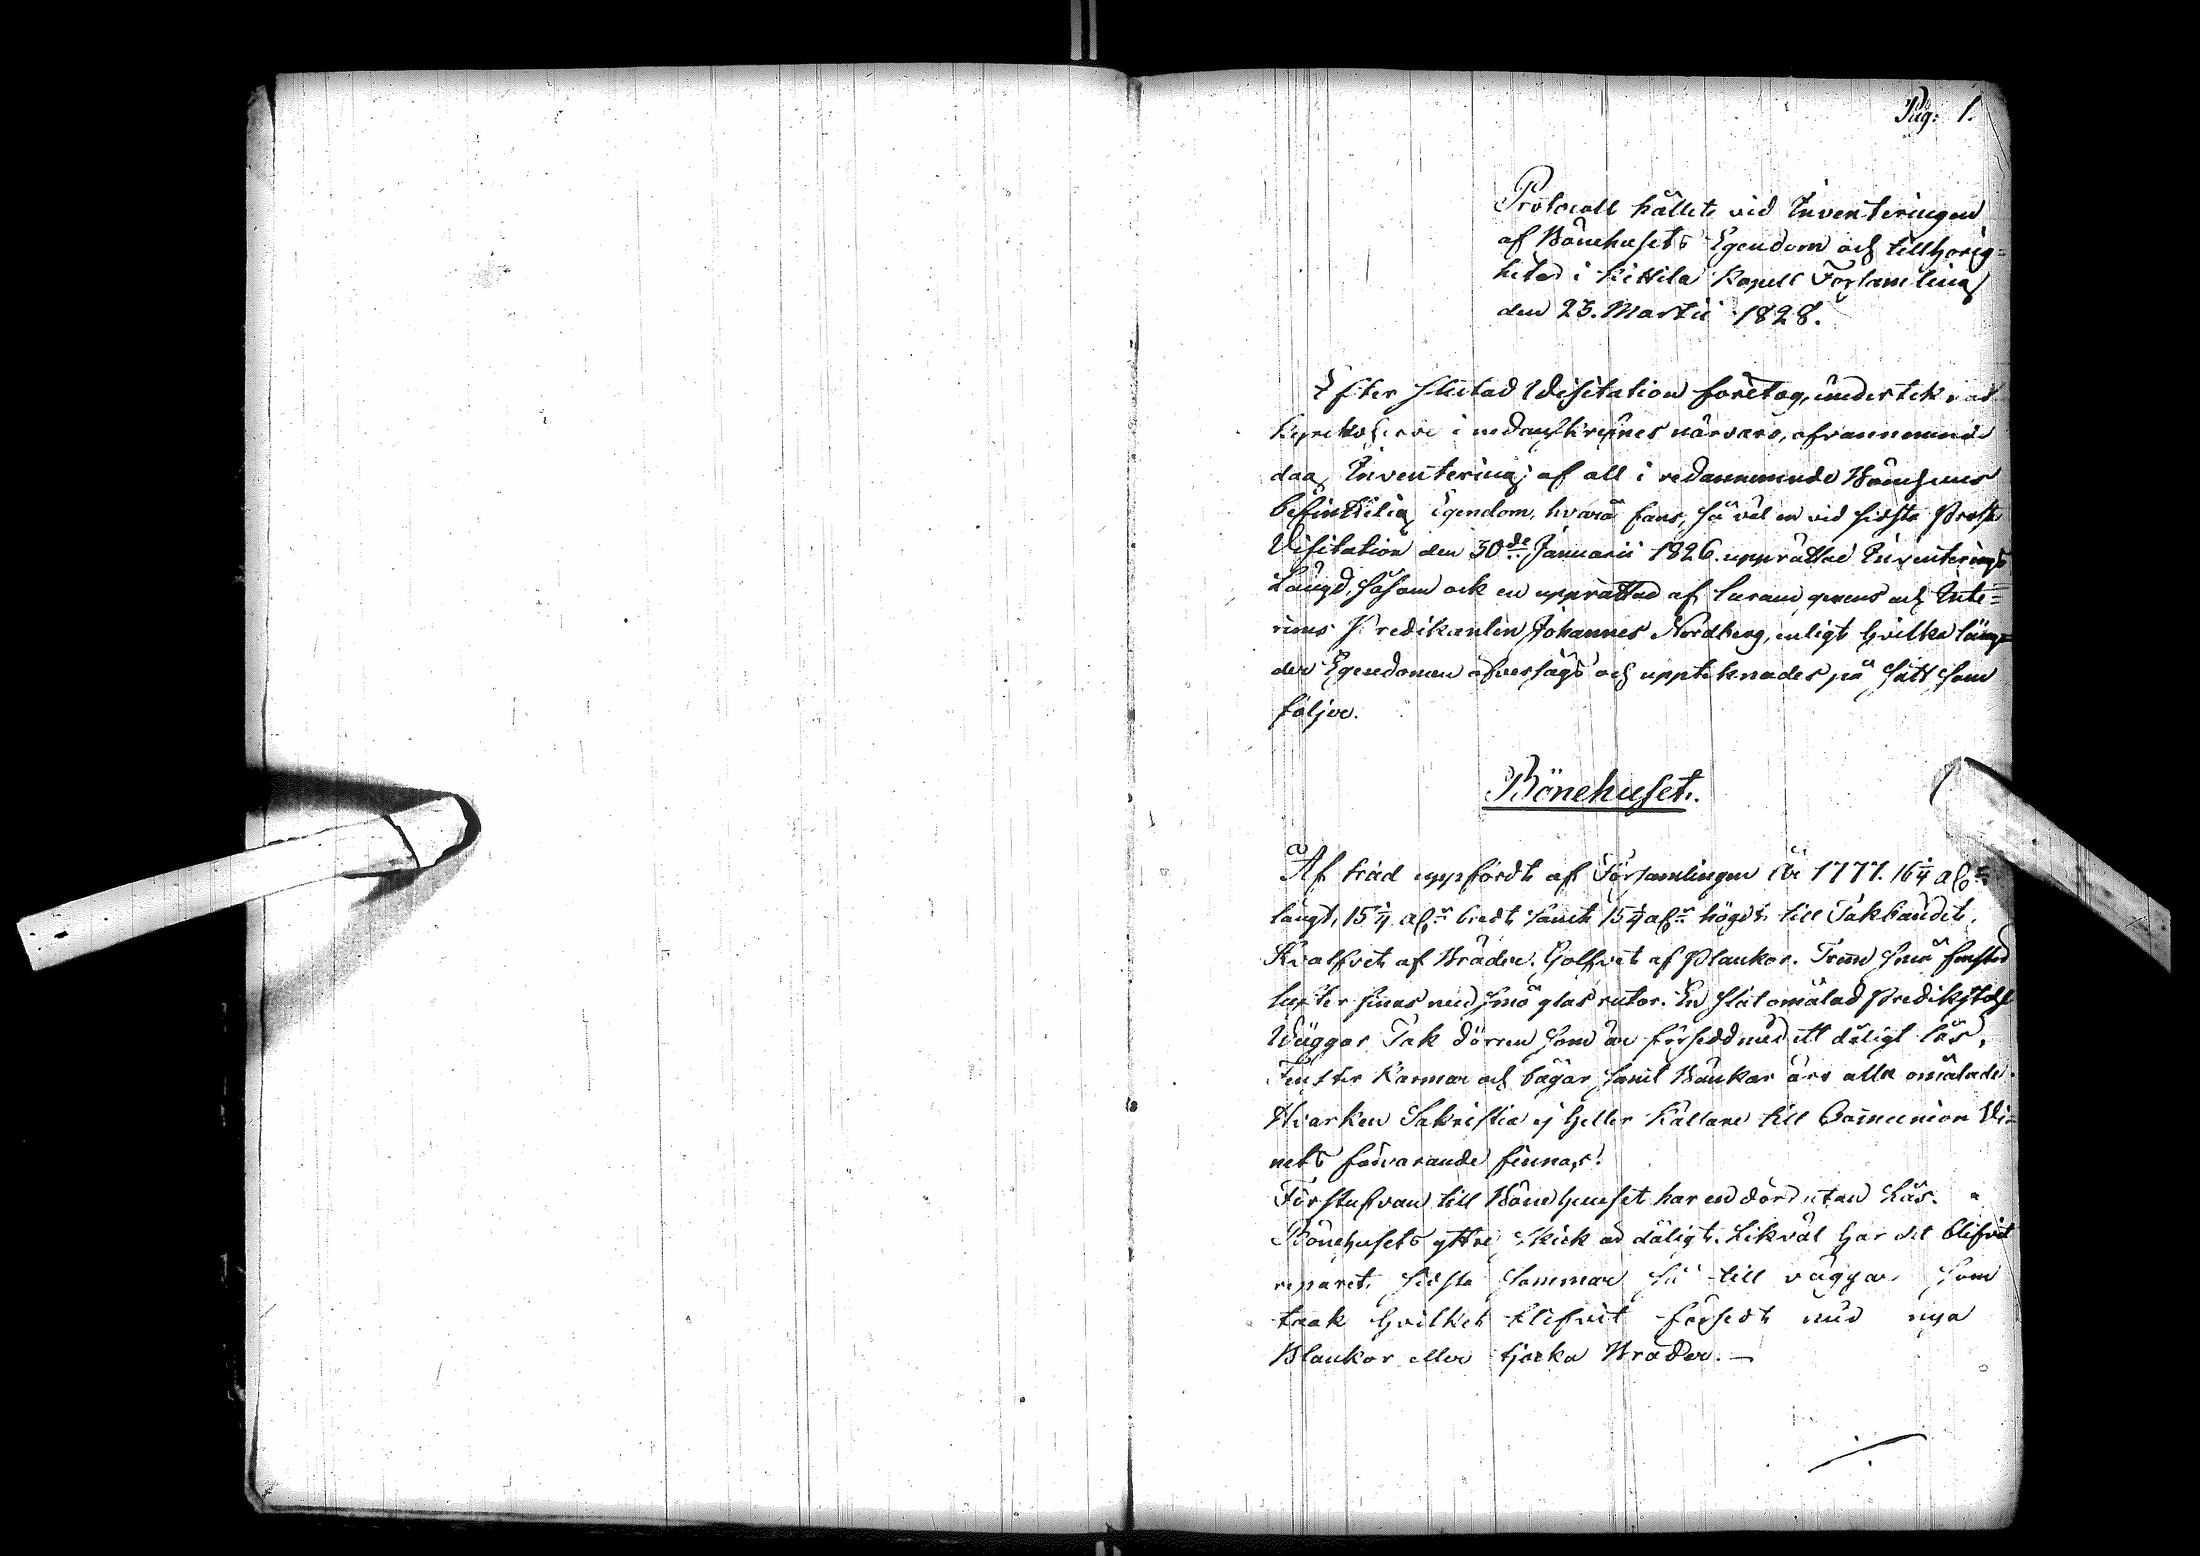 Pag: 1.
Protocoll hållit vid Inventeringen
af Bönehusets Egendom och tillhörig-
heter i Kittilä Kapell Församling
den 25. Martii 1828.
Efter slutad Visitation företog, undertecknad
Kyrkoherre i nedanskrefnes närvaro, ofvannämnde
dag Inventering af all i redannemnde Bönehus
befintlig egendom, hvará fans, så väl en vid sidsta Prosts
Visitation den 30de Januarii 1826. upprättad Inventerings
Längd, såsom ock en upprättad af Inte-
rims Predikanten Johannes Nordberg, enligt hvilka läng-
der Egendomen öfversågs och uppteknades på sätt som
följer.
Bönehuset.
Af träd uppfördt af Församlingen år 1777. 16 1/4 alnr
långt, 15 1/4 alnr bredt samt 15 1/4 alnr högdt till Takbandet,
Hvalfvet af Bräder. Golfvet af Plankor. Trenne små fenster
lufter finas med små glas rutor. En slät omålad Predikstohl
Väggar Tak dörren som är försedd med ett dåligt lås,
Fenster Karmar och bågar samt Bänkar äro alla omålade.
Hvarken Sakristia ej heller Källare till Communion Vi-
nets förvarande finnas.
Förstufvan till Bönehuset har en dörr utan Lås.
Bönehusets yttre skick är dåligt. Likväl har det blifvit
reparet. sidsta Sommar så till väggar som
taak hvilket blifvit försedt med nya
Plankor eller tjocka Bräder. —